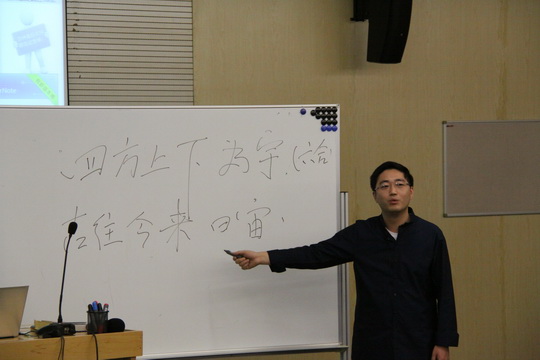 四方上下为宇(六合)
古往今来曰宙